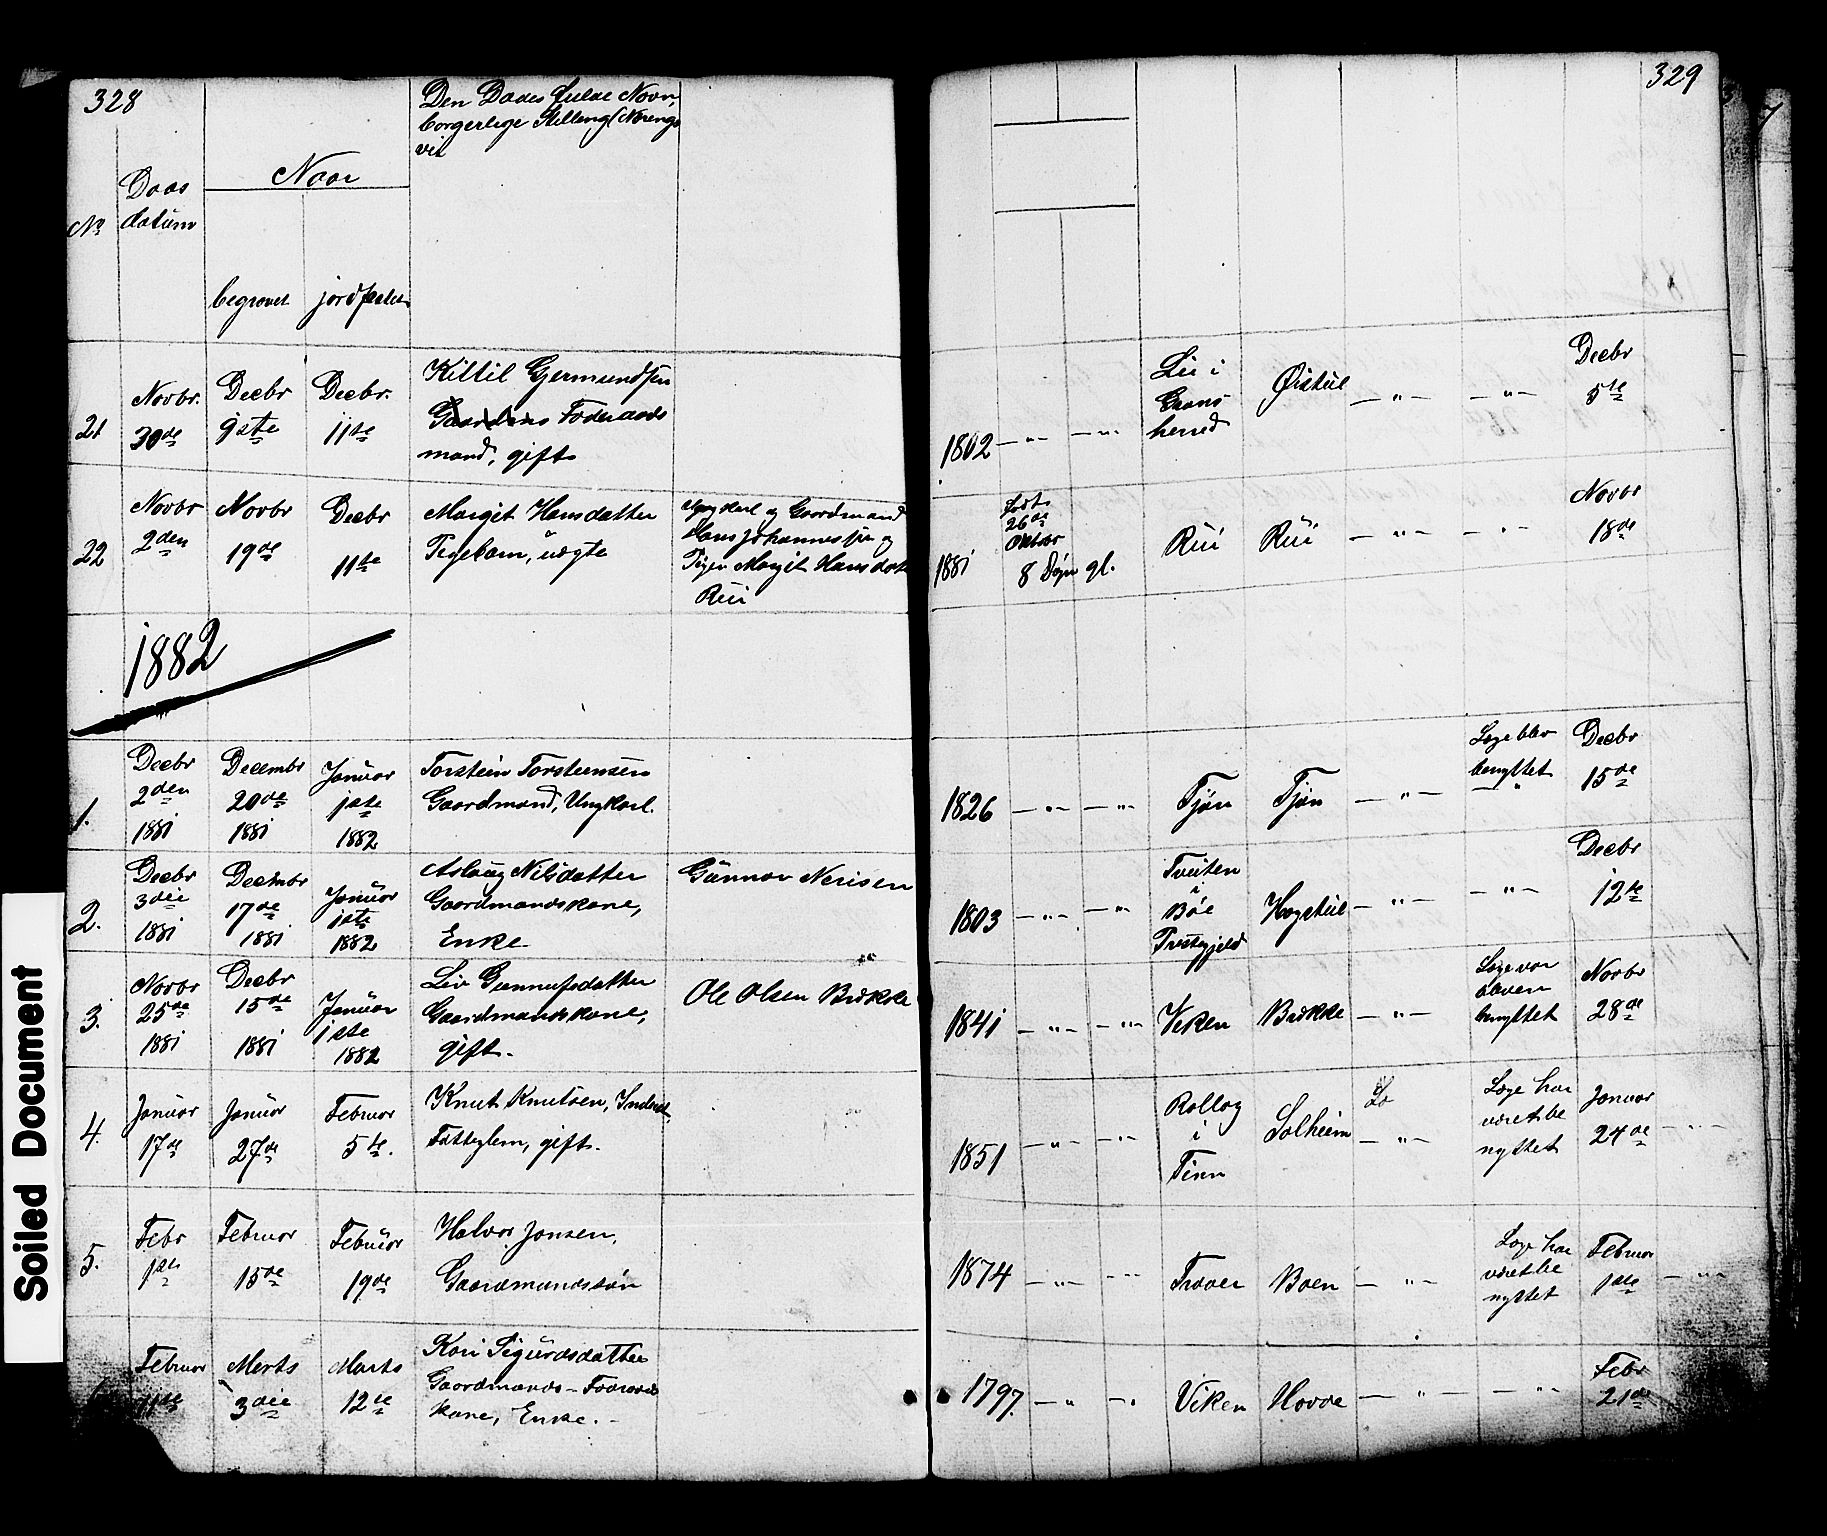 328
Den Dødes fulde Navn,
borgerlige Stilling (Nærings
vei
Naar
Døds
datum
No
begravet
jordfæstet
21
Novbr.
30de
Decbr
9ste
Decbr.
11te
Kittil Gjermundsen
Foderaads
mand, gift
22
Novbr
2den
Novbr
19de
Decbr
11te
Margit Hansdatter
Pigebarn, uægte
Ungkarl og Gaardmand
Hans Johannessen og
Pigen Margit Hansdatt
Rui
1882
1.
Decbr
2den
1881
Decembr
20de
1881
Januar
1ste
1882
Torstein Torsteinsen
Gaardmand, Ungkarl.
2.
Decbr
3die
1881
Decembr
17de
1881
Januar
1ste
1882
Aslaug Nilsdatter
Gaardmandskone,
Enke
Gunnar Nerisen
3.
Novbr
25de
1881
Decbr
15de
1881
Januar
1ste
1882
Liv Gunnufsdatter
Gaardmandskone,
gift.
Ole Olsen Brække
4.
Januar
17de
Januar
27de
Februar
5te.
Knut Knutsen, Inderst,
Fattiglem, gift.
5.
Febr
1ste
Februar
15de
Februar
19de
Halvor Jonsen,
Gaardmandssøn
Februar
11te
Marts
3die
Marts
12te
Kari Sigurdsdatter
Gaardmands-Foderaads
kone, Enke. -
329
1802
Lii i
Grans-
herred
Øistul
Decbr
5te
1881
født
26de
Oktbr
8 Døgn gl.
Rui
Rui
Novbr
18de
1826
Tjøn
Tjøn
Læge blev
benyttet
Decbr
15de
1803
Tveiten
i
Bøe
Præstegjeld
Høgstul
Decbr
12te
1841
Veken
Brække
Læge var
bleven
benyttet
Novbr
28de
1851
Rollag
i
Tinn
Solheim
Læ
Læge har
været be
nyttet
Januar
24de
1874
Traaer
Boen
Læge har
været be
nyttet
Februar
1ste
1797.
Viken
Hovde
Febr
21de
Soiled Document